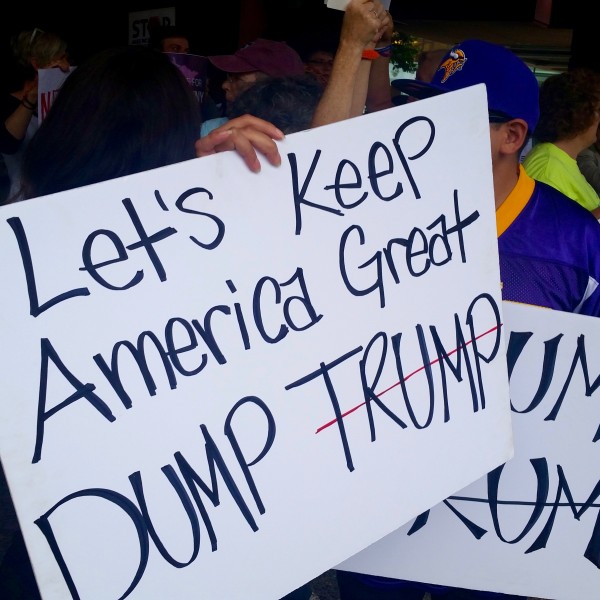 STOP
Let's Keep
America Great
DUMP TRUMP